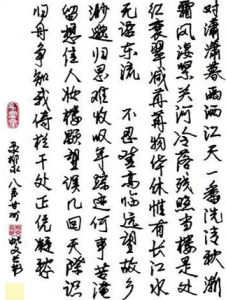 对潇潇暮雨洒江天一番洗清秋渐
霜风凄紧关河冷落残照当楼是处
红衰翠减苒苒物华休惟有长江水
无语东流 不忍登高临远望故乡
渺邈归思难收叹年踪迹何事苦淹
留想佳人妆楼颙望误几回天际识
归舟争知我倚栏干处正恁凝愁
柳永 八声甘州